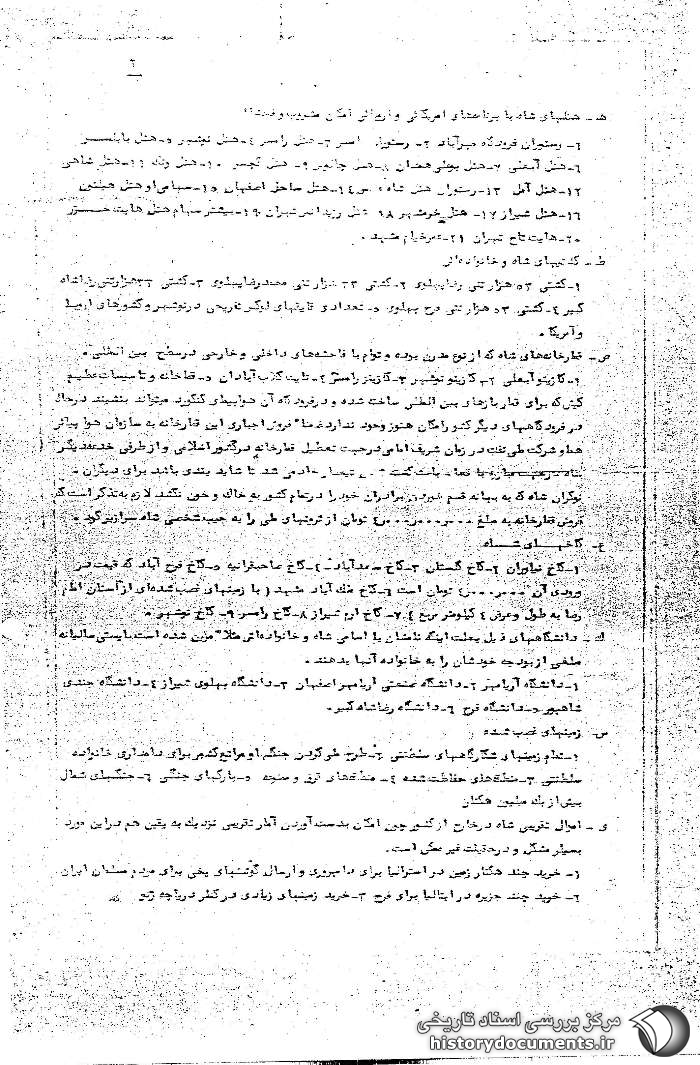 ۲
هـ - هتلهای شاه با پرداختهای امریکائی و ایرانی امکان مشروب و فحشا
۱- رستوران فرودگاه مهرآباد ۲- رستوران ۳- هتل رامسر ۴- هتل نوشهر ۵- هتل بابلسر
۶- هتل آبعلی ۷- هتل بوعلی همدان ۸- هتل چالوس ۹- هتل گچسر ۱۰- هتل ونک ۱۱- هتل شاهی
۱۲- هتل آمل ۱۳- رستوران هتل شاه ۱۴- هتل ساحل اصفهان ۱۵- سهامی او هتل هیلتون
۱۶- هتل شیراز ۱۷- هتل خرمشهر ۱۸ هتل تهران ۱۹- بیشتر سهام هتل هایت خزر
۲۰- هایت تاج تهران ۲۱- خیام مشهد .
ط - کشتیهای شاه و خانواده‌اش
۱- کشتی ۵۳ هزار تنی رضا پهلوی ۲- کشتی ۳۳ هزار تنی محمدرضا پهلوی ۳- کشتی ۳۳ هزار تنی رضاشاه
کبیر ۴- کشتی ۵۳ هزار تنی فرح پهلوی ۵- تعدادی قایقهای لوکس تفریحی در نوشهر و کشورهای اروپا
و آمریکا .
ض - قمارخانه‌های شاه که از نوع مدرن بوده و توام با فاحشه‌های داخلی و خارجی در سطح بین المللی .
۱- کازینو آبعلی ۲- کازینو نوشهر ۳- کازینو رامسر ۴- کلاب آبادان ۵- قمارخانه و تاسیسات عظیم
کیش که برای قماربازهای بین المللی ساخته شده و در فرودگاه آن هواپیمای کنکورد میتواند بنشیند درحال
در فرودگاههای دیگر کشور امکان هنوز وجود ندارد ضمنا" فروش اجباری این قمارخانه به سازمان هواپیمائی
هما و شرکت ملی نفت در زمان شریف امامی درجهت تعطیل قمارخانه در کشور اسلامی و از طرفی خدعه دیگر
شاه درجهت مبارزه با فساد شد تا شاید پندی باشد برای دیگران -
نوکران شاه که به بهانه قسم خوردن برادران خود را در تمام کشور به خاک و خون نکشند لازم به تذکر است که
فروش قمارخانه به مبلغ ۴۰۰۰۰۰۰۰۰۰ تومان از ثروتهای ملی را به جیب شخصی شاه سرازیر کرد .
ع - کاخهای شاه
۱- کاخ نیاوران ۲- کاخ گلستان ۳- کاخ سعدآباد ۴- کاخ صاحبقرانیه ۵- کاخ فرح آباد که قیمت در
ورودی آن تومان است ۶- کاخ ملک آباد مشهد ( با زمینهای غصب شده‌ای از آستان امام
رضا به طول و عرض ۴ کیلومتر مربع ) ۷- کاخ ارم شیراز ۸- کاخ رامسر ۹- کاخ نوشهر .
ک - دانشگاههای ذیل بعلت اینکه نامشان با اسامی شاه و خانواده‌اش مثلا" مزین شده است بایستی سالیانه
مبلغی از بودجه خودشان را به خانواده آنها بدهند .
۱- دانشگاه آریامهر ۲- دانشگاه صنعتی آریامهر اصفهان ۳- دانشگاه پهلوی شیراز ۴- دانشگاه جندی
شاهپور ۵- دانشگاه فرح ۶- دانشگاه رضاشاه کبیر .
س - زمینهای غصب شده
۱- تمام زمینهای شکارگاههای سلطنتی ۲- طرح ملی کردن جنگل و مراتع کشور برای دامداری خانواده
سلطنتی ۳- منطقه‌های حفاظت شده ۴- منطقه‌های ۵- پارکهای جنگلی ۶- جنگلهای شمال
بیش از یک میلیون هکتار
ی - اموال تقریبی شاه در خارج از کشور چون امکان بدست آوردن آمار تقریبی نزدیک به یقین هم در این مورد
بسیار مشکل و در حقیقت غیر ممکن است .
۱- خرید چند هکتار زمین در استرالیا برای دامپروری و ارسال گوشتهای یخی برای مردم مسلمان ایران
۲- خرید چند جزیره در ایتالیا برای فرح ۳- خرید زمینهای زیادی در کنار دریاچه ژنو
مرکز بررسی اسناد تاریخی
historydocuments.ir